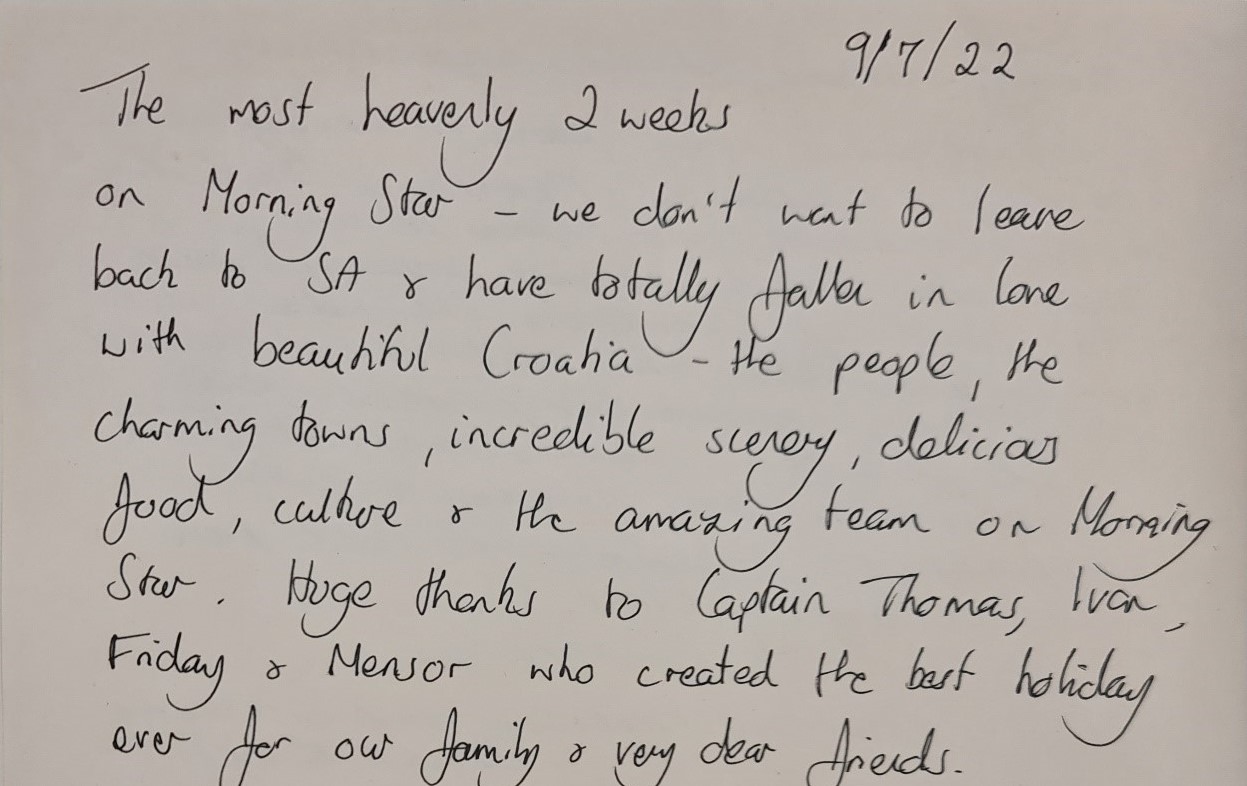 9/7/22
The most heavenly 2 weeks
on Morning Star - we don't want to leave
back to SA & have totally fallen in love
with beautiful Croatia - the people, the
charming towns, incredible scenery, delicious
food, culture & the amazing team on Morning
Star. Huge thanks to Captain Thomas, Ivan,
Friday & Mensor who created the best holiday
ever for our family & very dear friends.